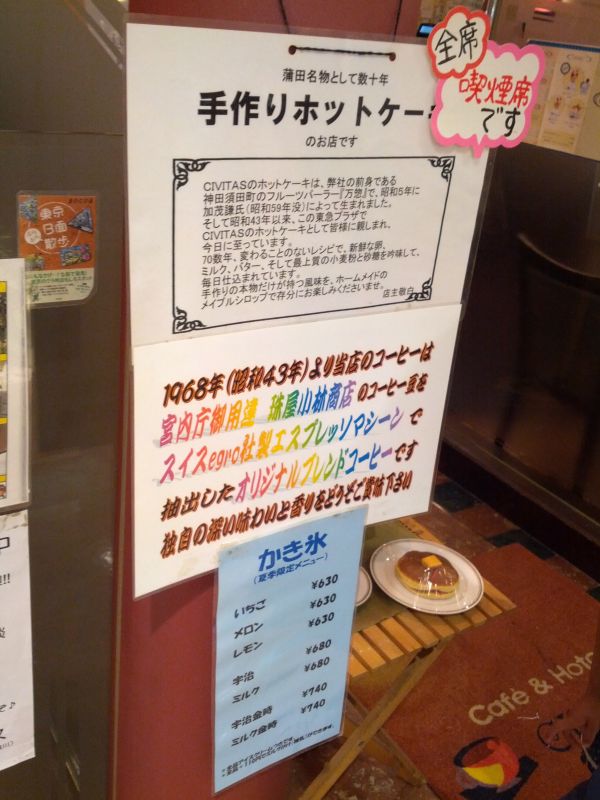 蒲田名物として数十年
手作りホットケー
のお店です
全席
喫煙席
です
CIVITASのホットケーキは、弊社の前身である
神田須田町のフルーツパーラー『万惣』で、昭和5年に
加茂謙氏（昭和59年没）によって生まれました。
そして昭和43年以来、この東急プラザで
CIVITASのホットケーキとして皆様に親しまれ、
今日に至っています。
70数年、変わることのないレシピで、新鮮な卵、
ミルク、バター、そして最上質の小麦粉と砂糖を吟味して、
毎日仕込まれています。
手作りの本物だけが持つ風味を、ホームメイドの
メイプルシロップで存分にお楽しみくださいませ。
店主敬白
東京
日面
散歩
1968年(昭和43年)より当店のコーヒーは
宮内庁御用達 珠屋小林商店のコーヒー豆を
スイスegro社製エスプレッソマシーンで
抽出したオリジナルブレンドコーヒーです
独自の深い味わいと香りをどうぞご賞味下さい
かき氷
(夏季限定メニュー)
いちご ¥630
メロン ¥630
レモン ¥630
宇治 ¥680
ミルク ¥680
宇治金時 ¥740
ミルク金時 ¥740
Café & Hot